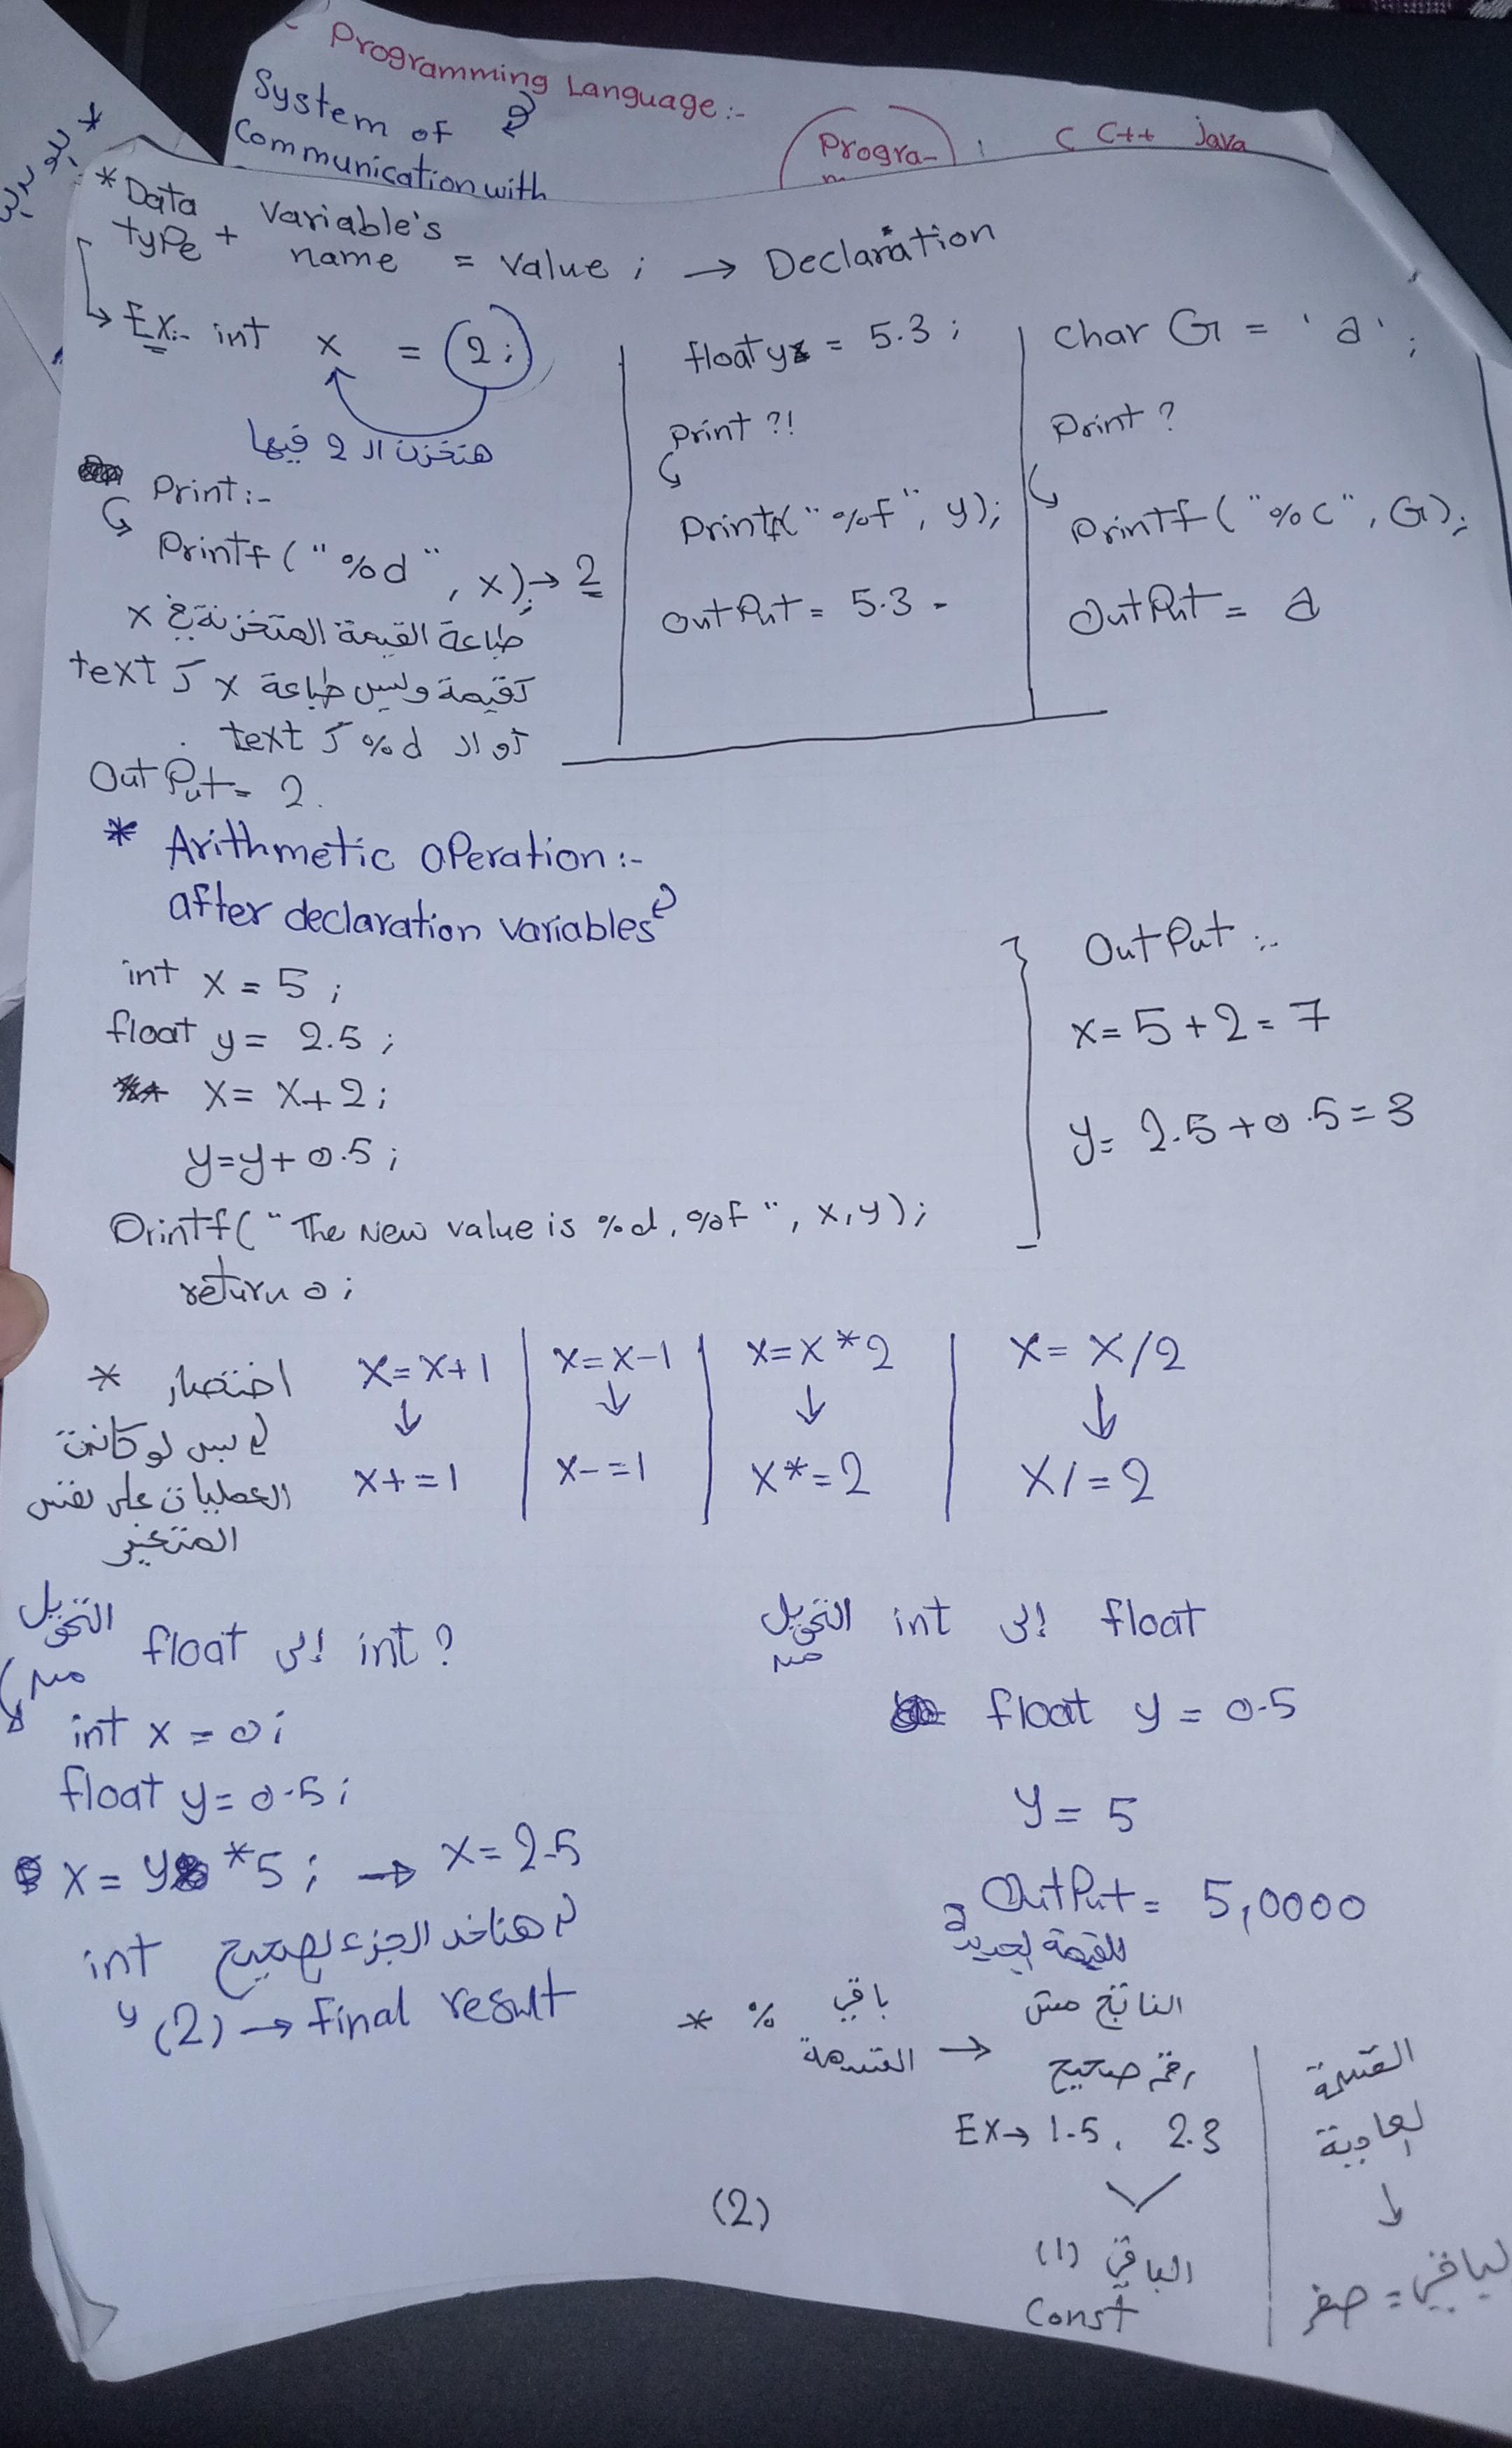 Programming Language:-
System of
Communication with
Progra-
m
C C++ Java
* Data type + Variable's name = value ; → Declaration
Ex:- int x = 2;
هتخزن الـ 2 فيها
Print:-
Printf("%d", x); → 2
طباعة القيمة المتخزنة في x
كقيمة وليس طباعة x كـ text
أو الـ %d كـ text
OutPut= 2.
float y = 5.3 ;
Print ?!
Printf("%f", y);
OutPut = 5.3
Char G = 'a' ;
Print ?
Printf("%c", G);
OutPut = a
* Arithmetic operation :-
after declaration variables
int x = 5 ;
float y = 2.5 ;
x = x+2 ;
y=y+0.5 ;
Printf("The New value is %d, %f", x,y);
return 0 ;
OutPut :-
x= 5+2 = 7
y= 2.5+0.5=3
* اختصار
بس لو كانت
العمليات على نفس
المتغير
x=x+1
↓
x+=1
x=x-1
↓
x-=1
x=x*2
↓
x*=2
x= x/2
↓
x/=2
التحويل من float إلى int ?
int x = 0;
float y= 0.5;
x = y *5 ; → x= 2.5
هناخد الجزء الصحيح int
(2) → final result
التحويل من int إلى float
float y = 0.5
y = 5
OutPut = 5,0000
القيمة الجديدة
* % باقي القسمة → الناتج مش
رقم صحيح
Ex→ 1.5, 2.3
الباقي (1)
Const
القسمة
العادية
↓
الباقي = صفر
(2)